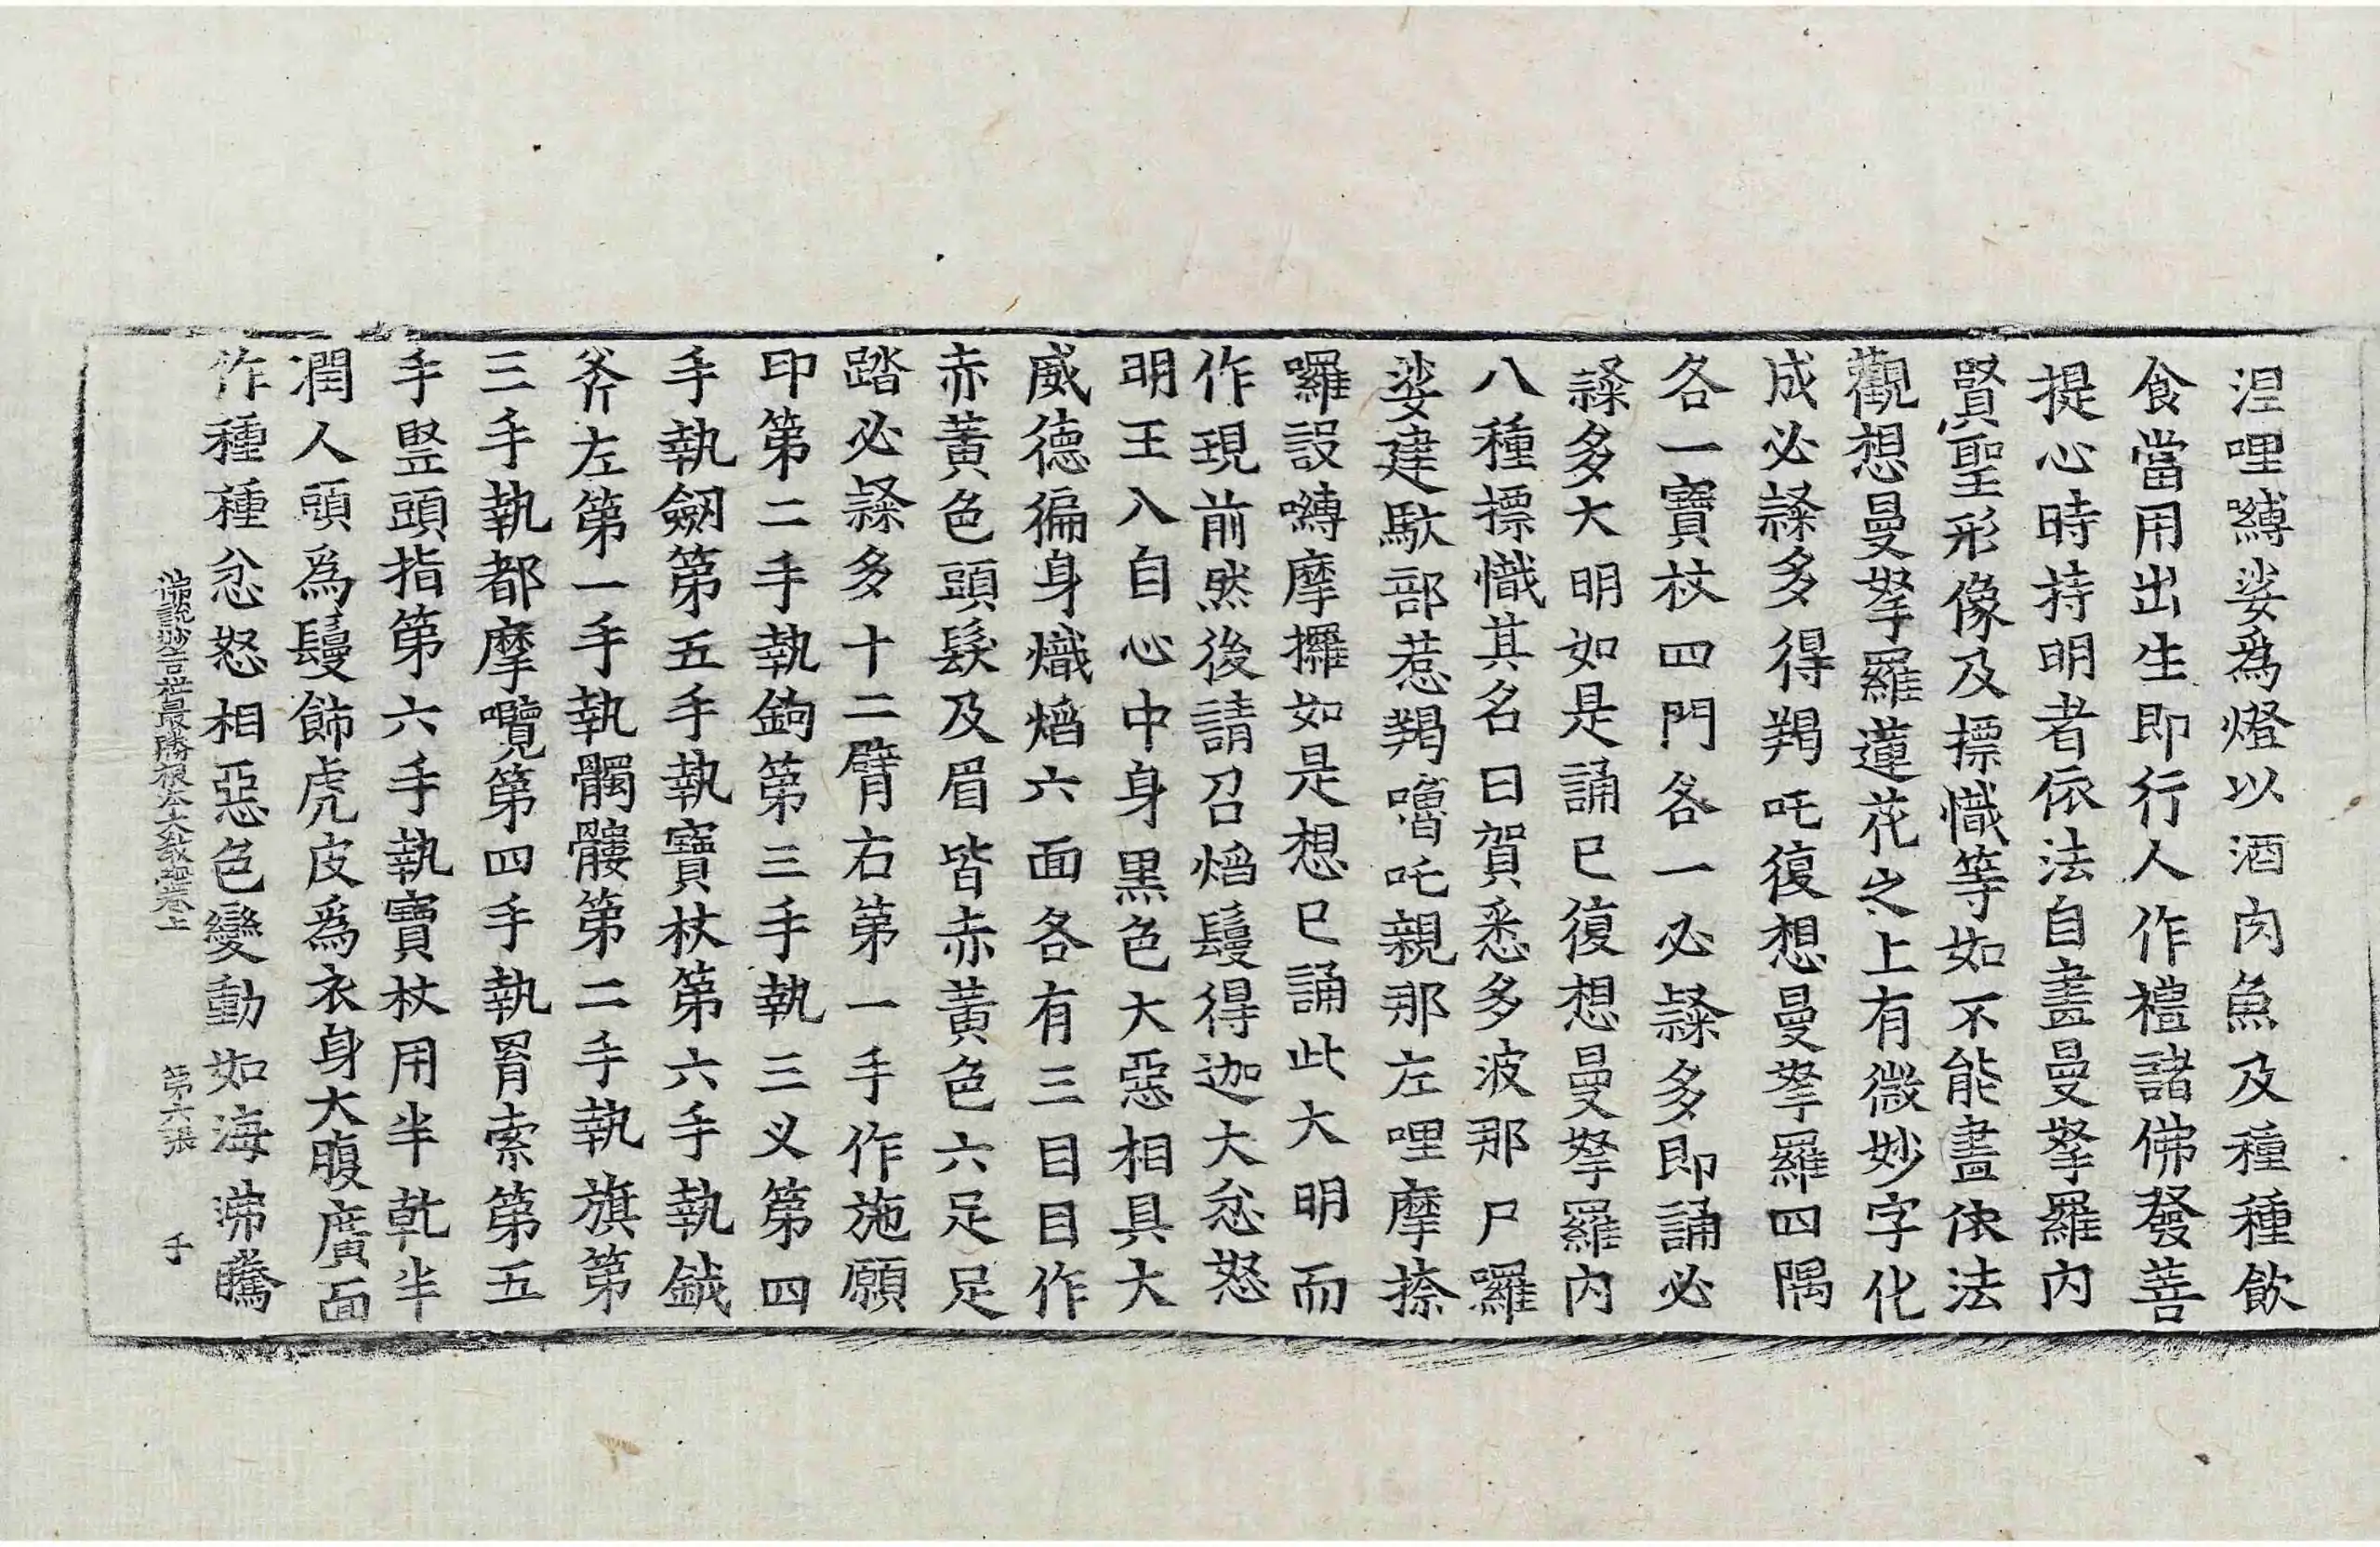 涅哩嚩娑爲燈以酒肉魚及種種飲
食當用出生即行人作禮諸佛發菩
提心時持明者依法自畫曼拏羅內
賢聖形像及摽幟等如不能畫依法
觀想曼拏羅蓮花之上有微妙字化
成必隸多得羯吒復想曼拏羅四隅
各一寶杖四門各一必隸多即誦必
隸多大明如是誦已復想曼拏羅內
八種摽幟其名曰賀悉多波那尸囉
娑建馱部惹羯嚕吒親那左哩摩捺
囉設嚩摩攞如是想已誦此大明而
作現前然後請召焰鬘得迦大忿怒
明王入自心中身黑色大惡相具大
威德徧身熾焰六面各有三目目作
赤黃色頭髮及眉皆赤黃色六足足
踏必隸多十二臂右第一手作施願
印第二手執鉤第三手執三叉第四
手執劒第五手執寶杖第六手執鉞
斧左第一手執髑髏第二手執旗第
三手執都摩囕第四手執罥索第五
手竪頭指第六手執寶杖用半乾半
潤人頭爲鬘飾虎皮爲衣身大腹廣面
作種種忿怒相惡色變動如海沸騰
佛說妙吉祥最勝根本大教經卷上 第六張 手